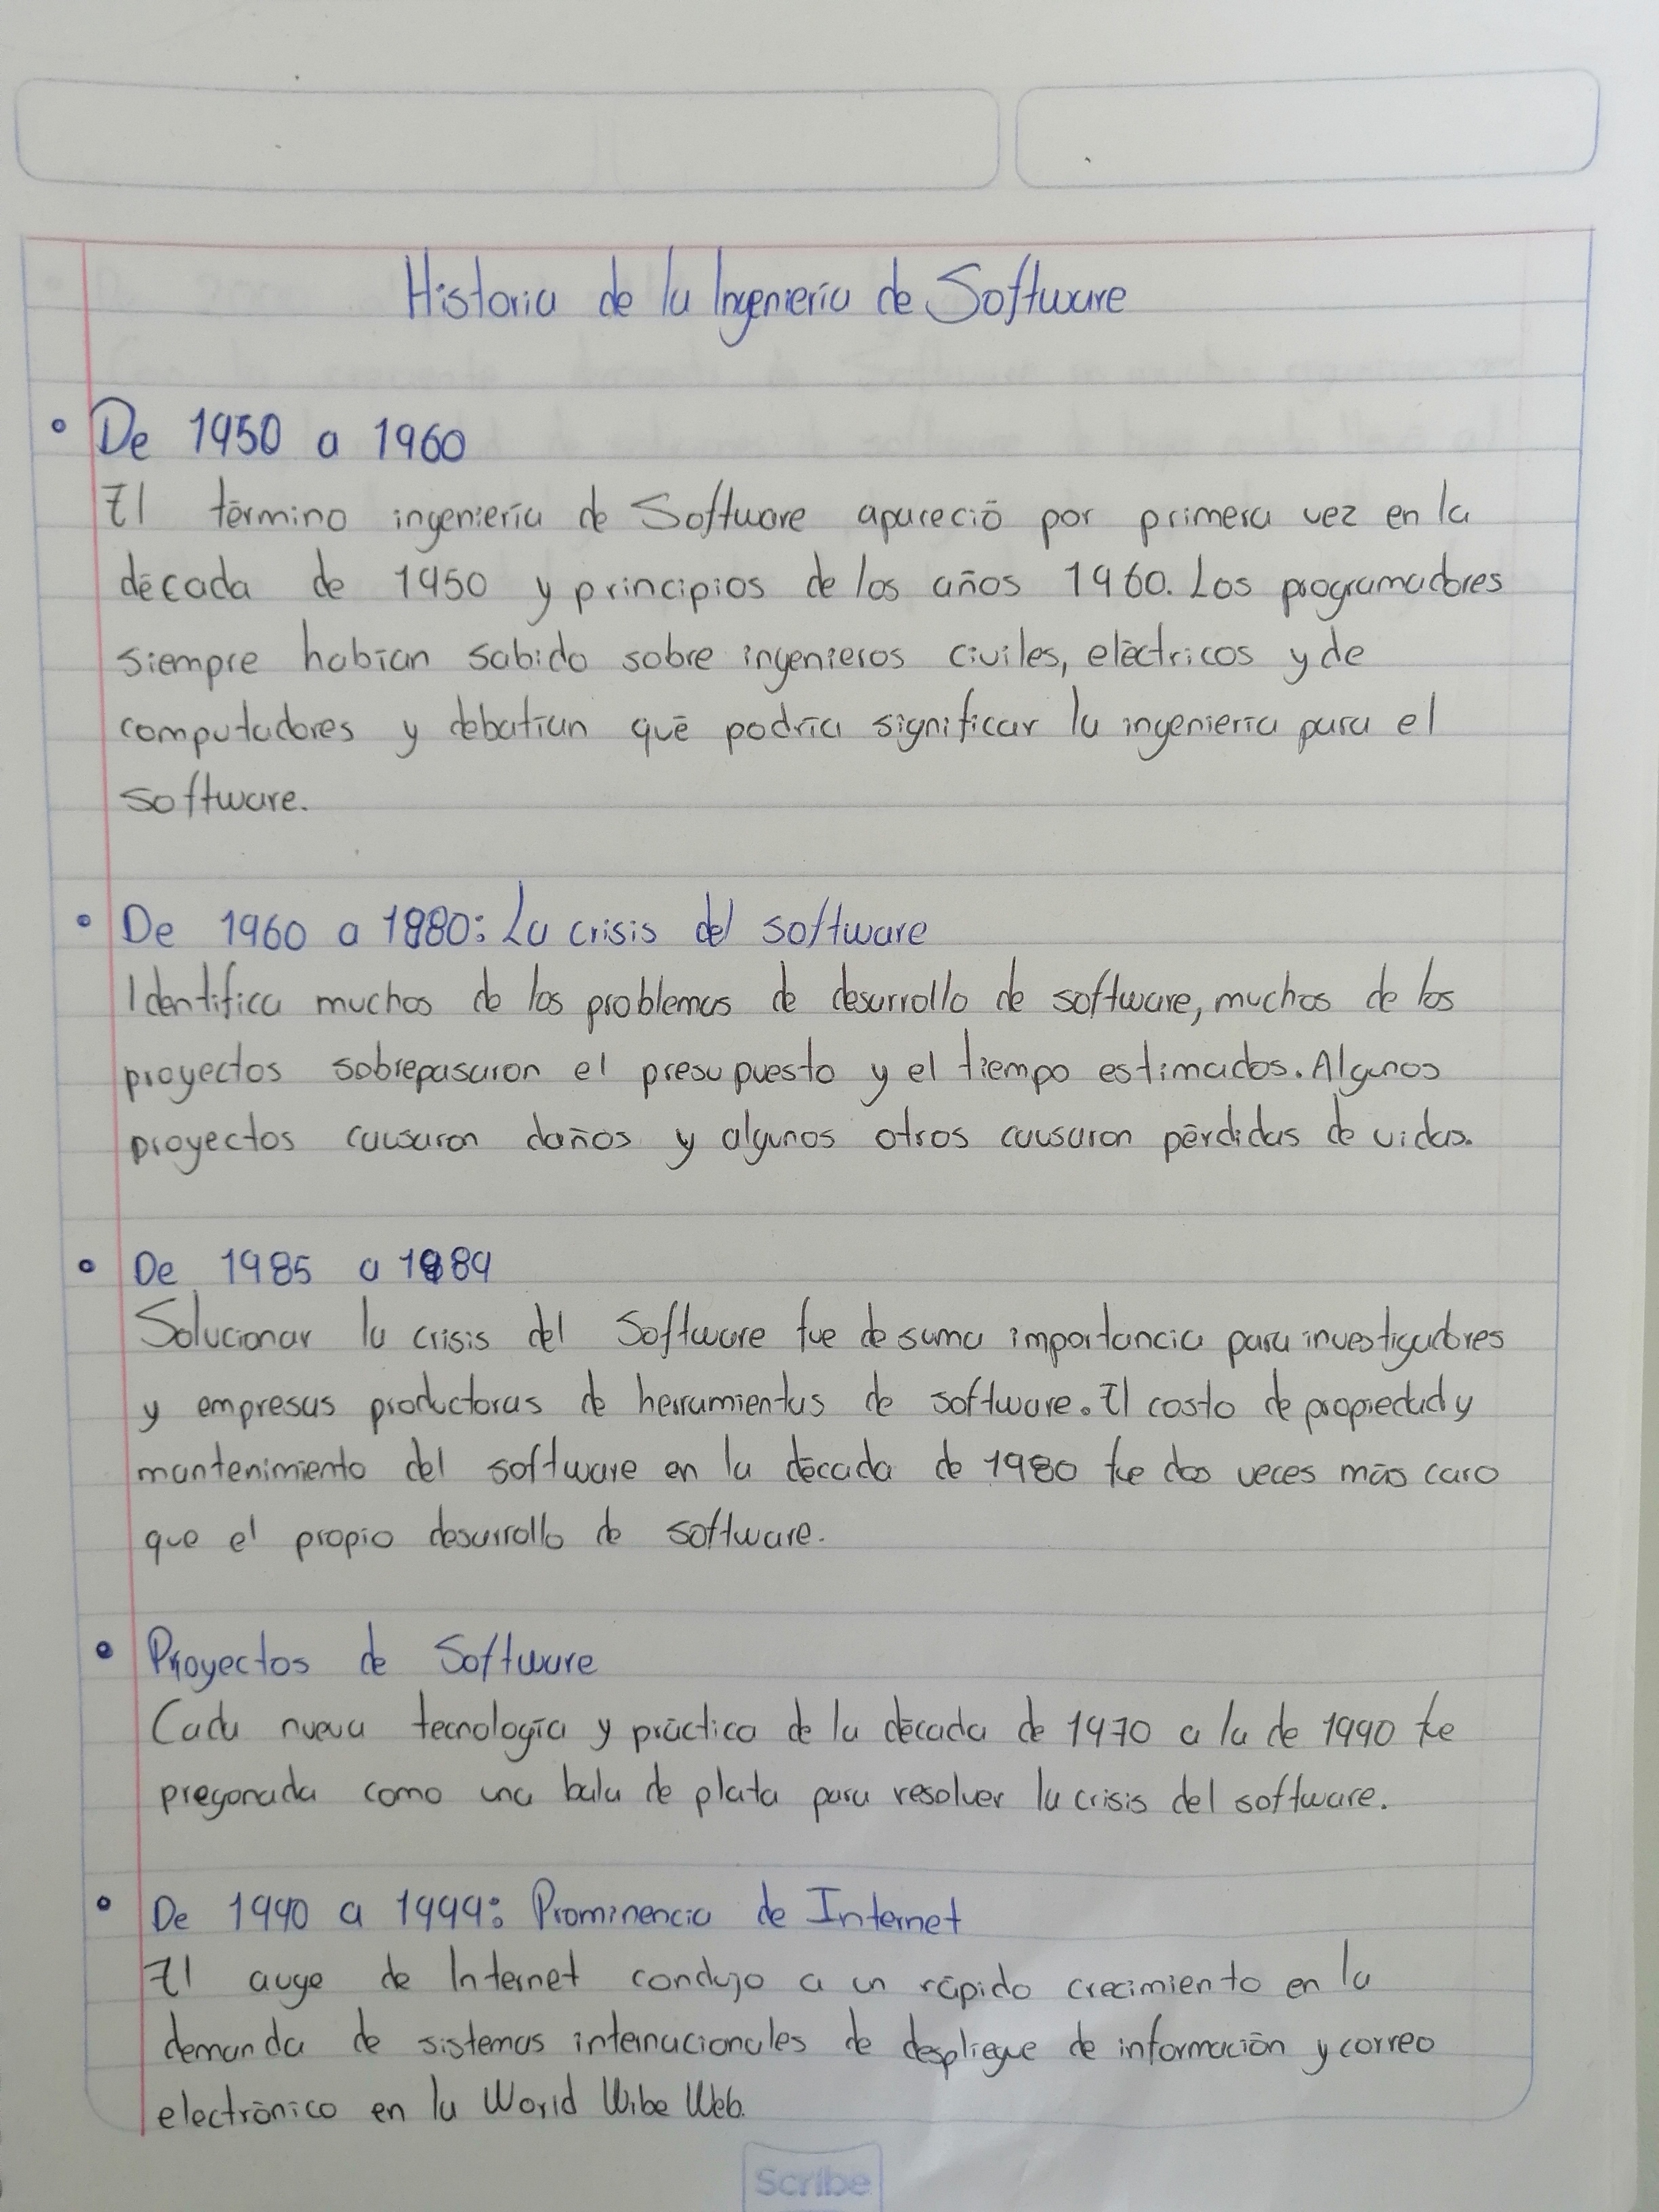 Historia de la Ingeniería de Software
• De 1950 a 1960
El término ingeniería de Software apareció por primera vez en la
década de 1950 y principios de los años 1960. Los programadores
siempre habían sabido sobre ingenieros civiles, eléctricos y de
computadores y debatían qué podría significar la ingeniería para el
software.
• De 1960 a 1980: La crisis del software
Identifica muchos de los problemas de desarrollo de software, muchos de los
proyectos sobrepasaron el presupuesto y el tiempo estimados. Algunos
proyectos causaron daños y algunos otros causaron pérdidas de vidas.
• De 1985 a 1989
Solucionar la crisis del Software fue de suma importancia para investigadores
y empresas productoras de herramientas de software. El costo de propiedad y
mantenimiento del software en la década de 1980 fue dos veces más caro
que el propio desarrollo de software.
• Proyectos de Software
Cada nueva tecnología y práctica de la década de 1970 a la de 1990 fue
pregonada como una bala de plata para resolver la crisis del software.
• De 1990 a 1999: Prominencia de Internet
El auge de Internet condujo a un rápido crecimiento en la
demanda de sistemas internacionales de despliegue de información y correo
electrónico en la World Wibe Web.
Scribe